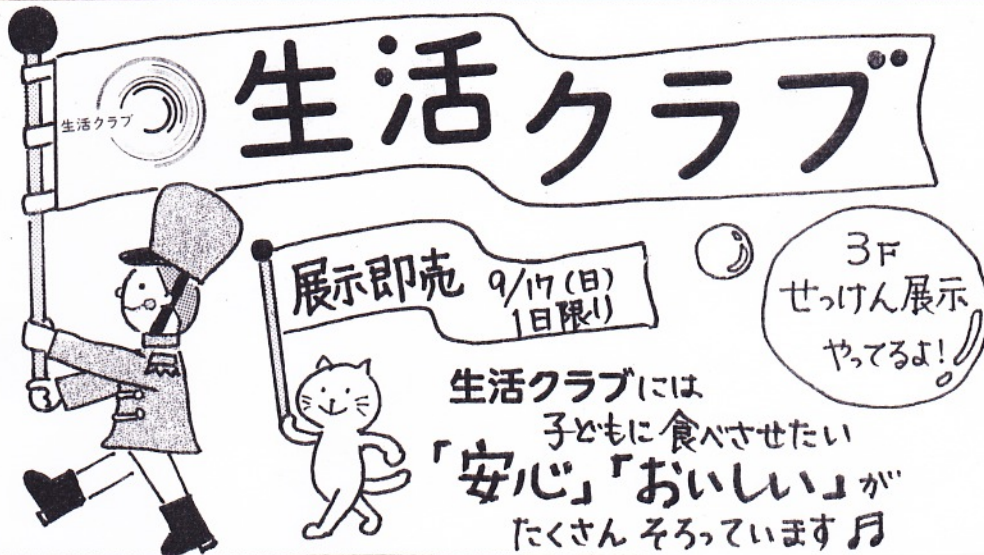 生活クラブ
生活クラブ
展示即売 9/17(日)
1日限り
3F
せっけん展示
やってるよ!
生活クラブには
子どもに食べさせたい
「安心」「おいしい」が
たくさんそろっています♬